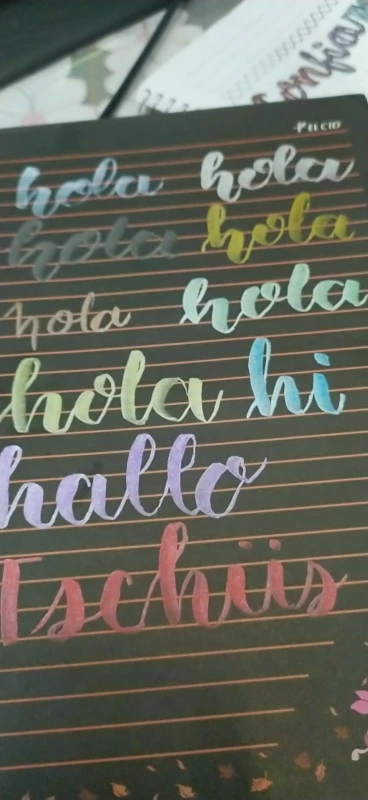 onfian
hola hola
hola hola
hola hola
hola hi
hallo
Tschüs